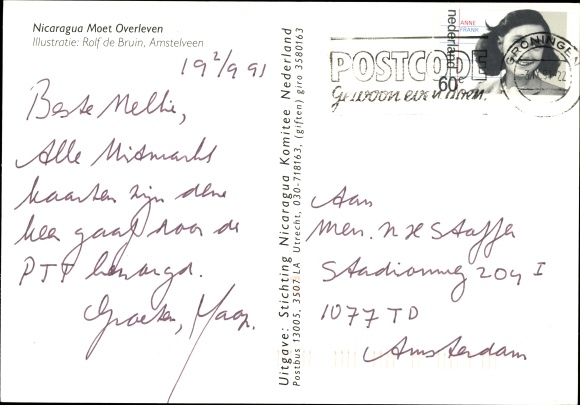 Nicaragua Moet Overleven
Illustratie: Rolf de Bruin, Amstelveen
19 2/9 91
Beste Nellie,
Alle Uitmarkt
kaarten zijn deze
keer gaaf door de
PTT bezorgd.
Groeten,
Uitgave: Stichting Nicaragua Komitee Nederland
Postbus 13005, 3507 LA Utrecht, 030-718163, (giften) giro 3580163
ANNE
FRANK
nederland
60c
POSTCODE
Gewoon even doen.
GRONINGEN
Aan
Mevr. N
Stadionweg 204 I
1077 TD
Amsterdam